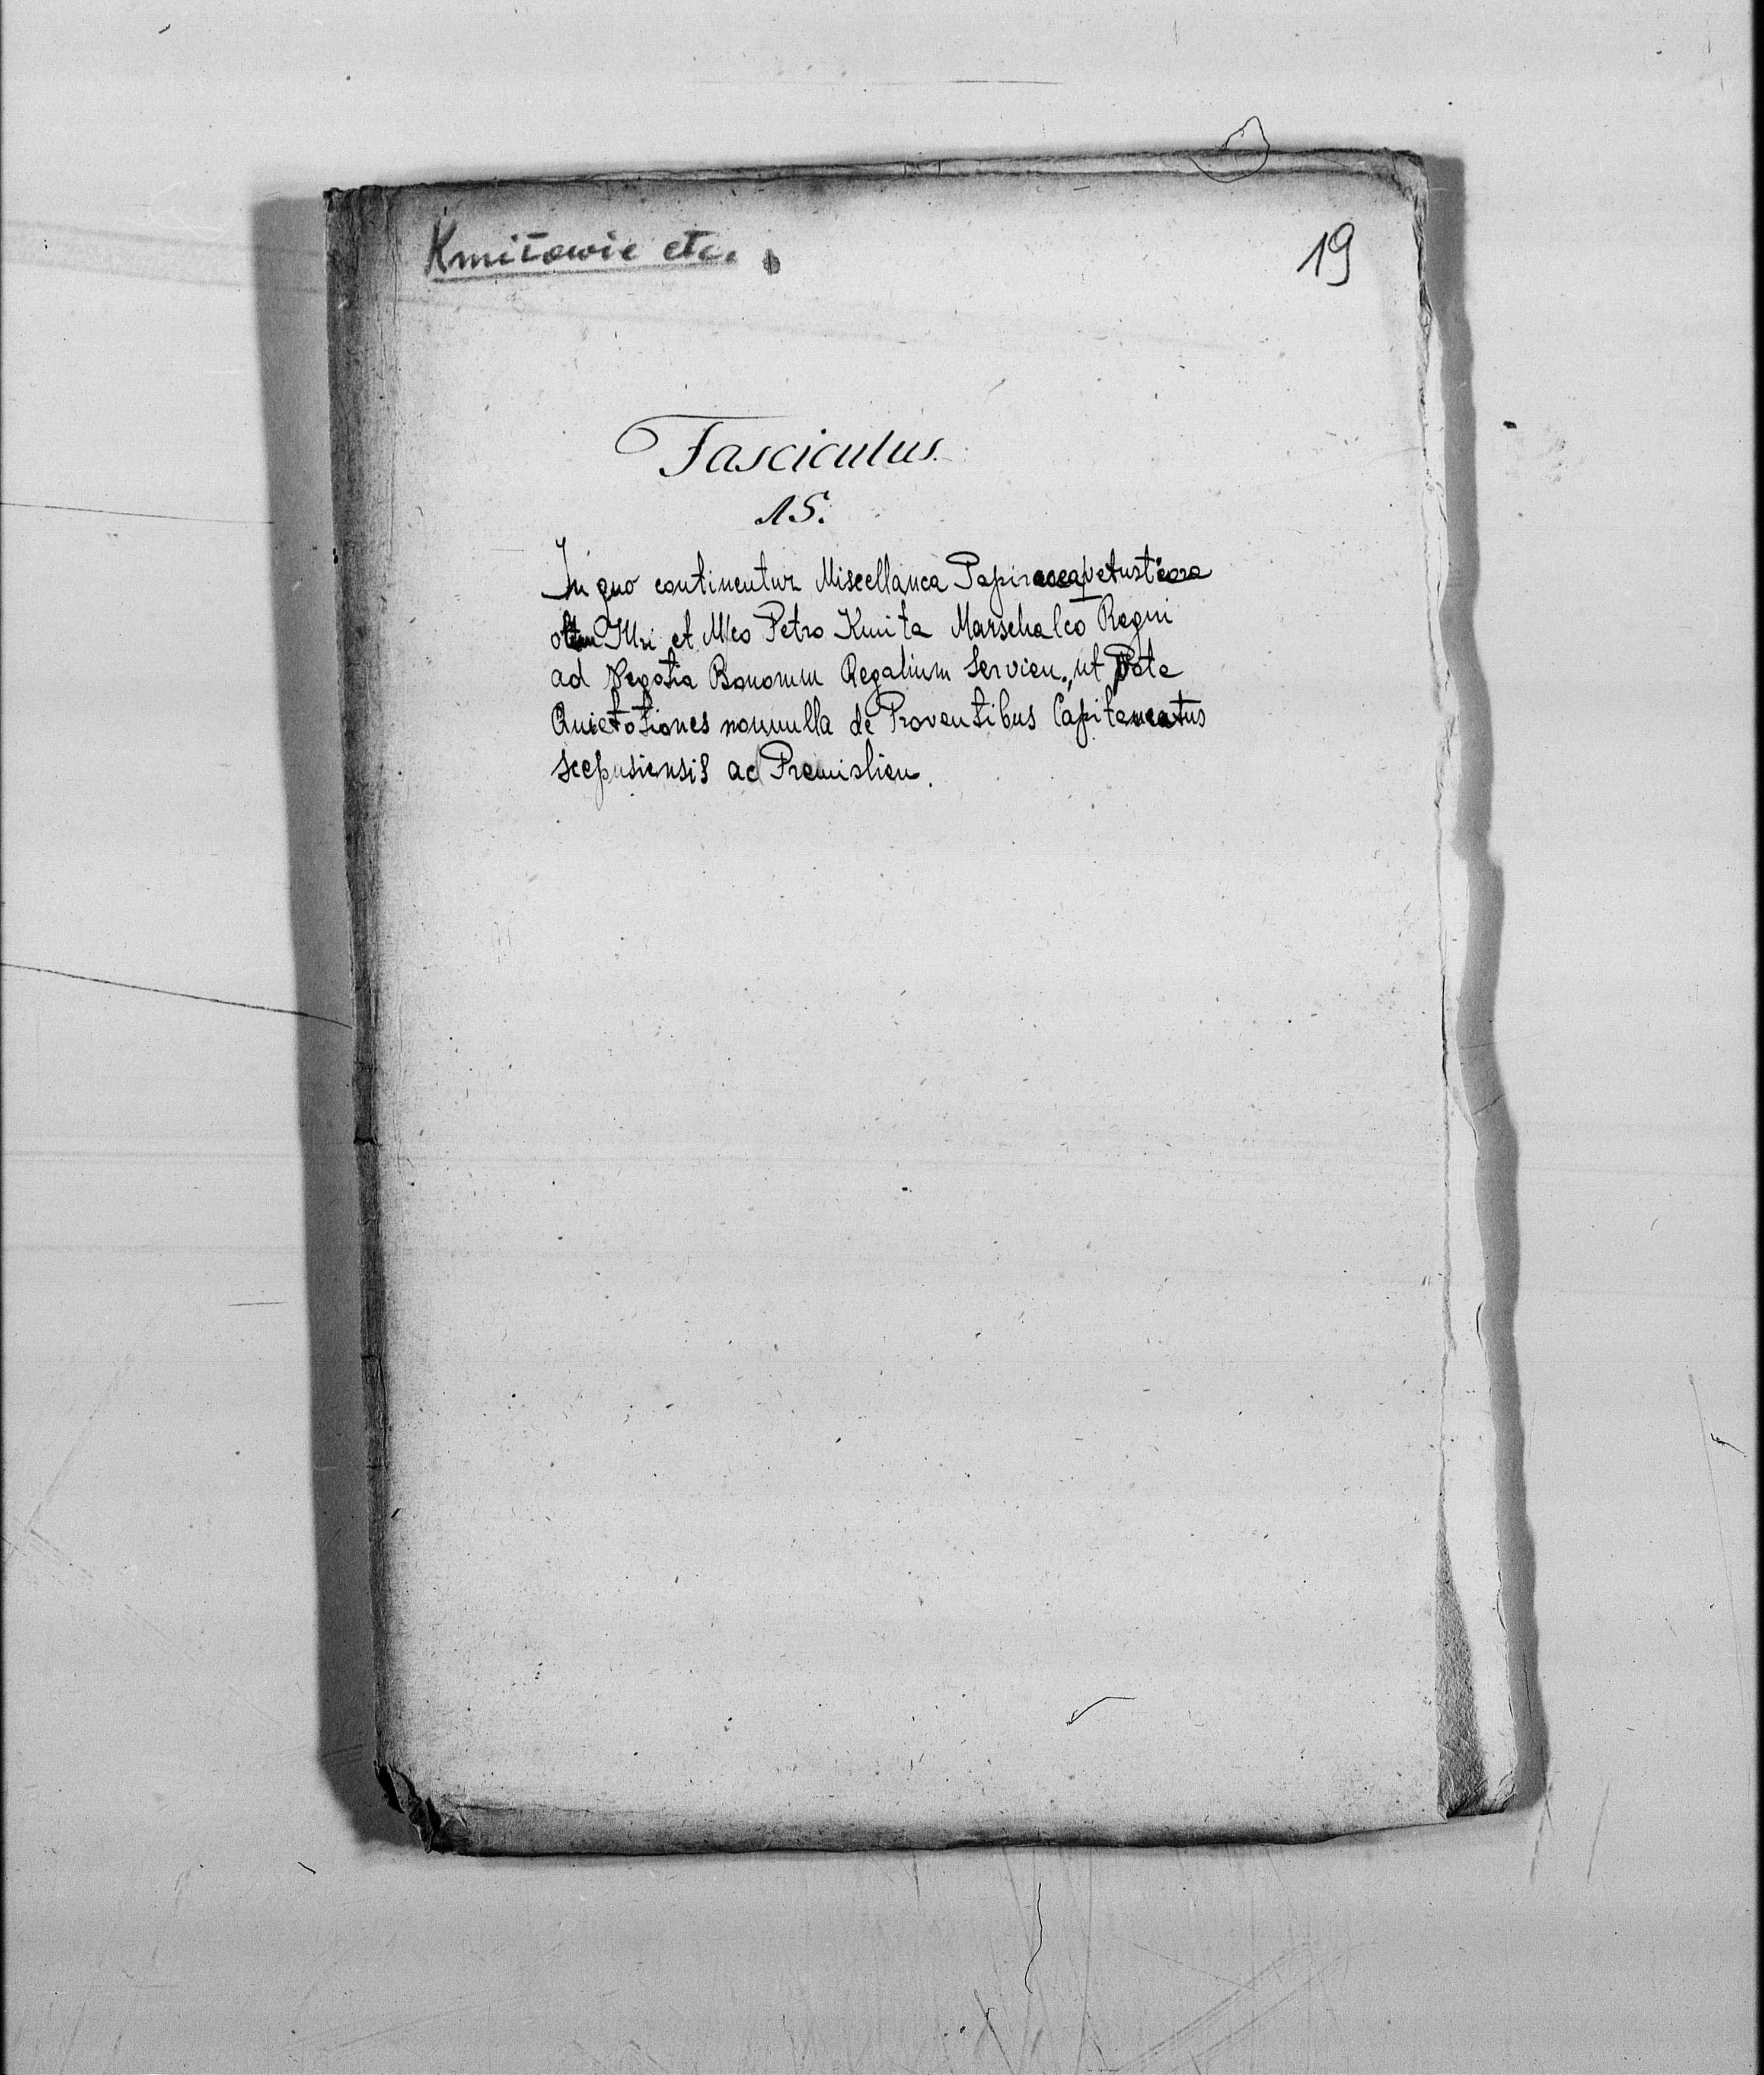 Kmitowie etc.
19
Fasciculus
15.
In quo continentur Miscellanea Papiracea vetustiora
olim Illri et Mco Petro Kmita Marschalco Regni
ad Negotia Bonorum Regalium servien., ut Pote
Quietationes nonnulla de Proventibus Capitaneatus
Scepusiensis ac Premislien.